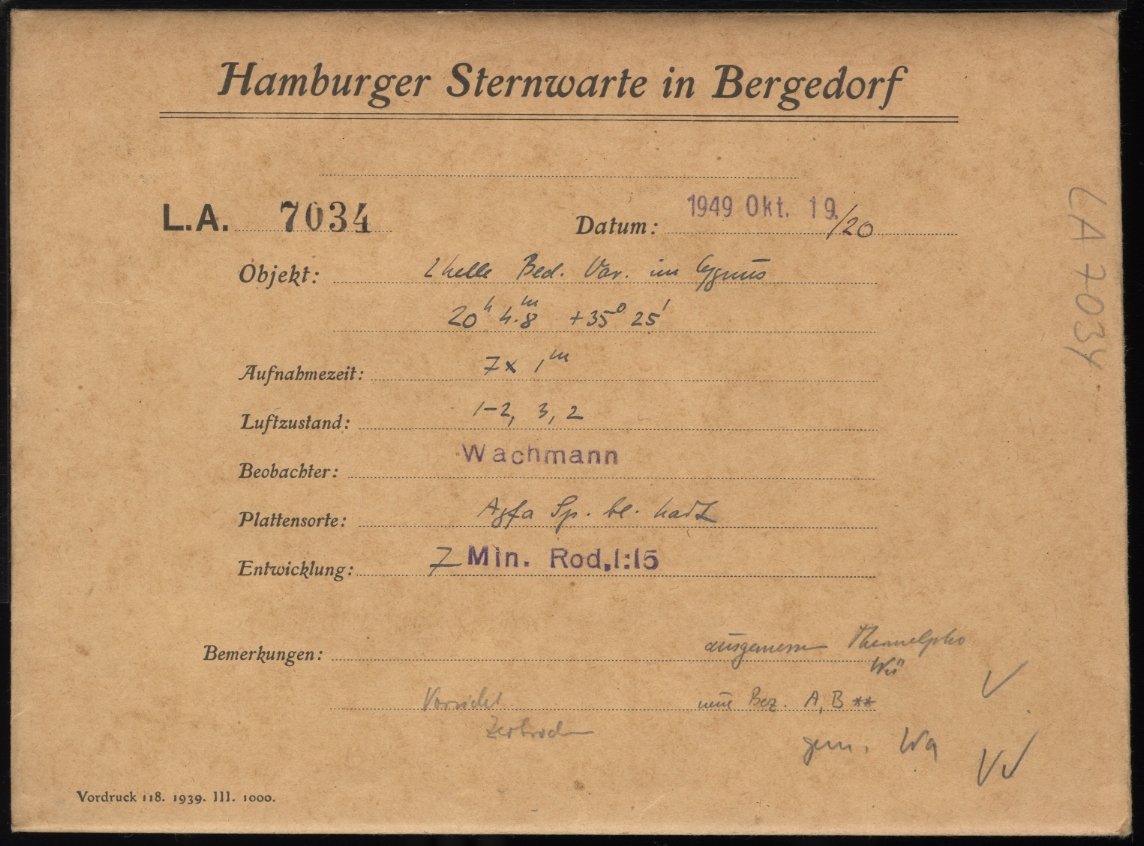 Hamburger Sternwarte in Bergedorf
L.A. 7034
Datum: 1949 Okt. 19./20
Objekt: 2 helle Bed. Var. im Cygnus
20h 4.m8 +35° 25'
Aufnahmezeit: 7x 1m
Luftzustand: 1-2, 3, 2
Beobachter: Wachmann
Plattensorte: Agfa Sp. bl. hart
Entwicklung: 7 Min. Rod. 1:15
Bemerkungen: ausgemessen
Wü
Vorsicht neue Bez. A, B **
Zerbrochen
gem. Wa
Vordruck 118. 1939. III. 1000.
LA 7034